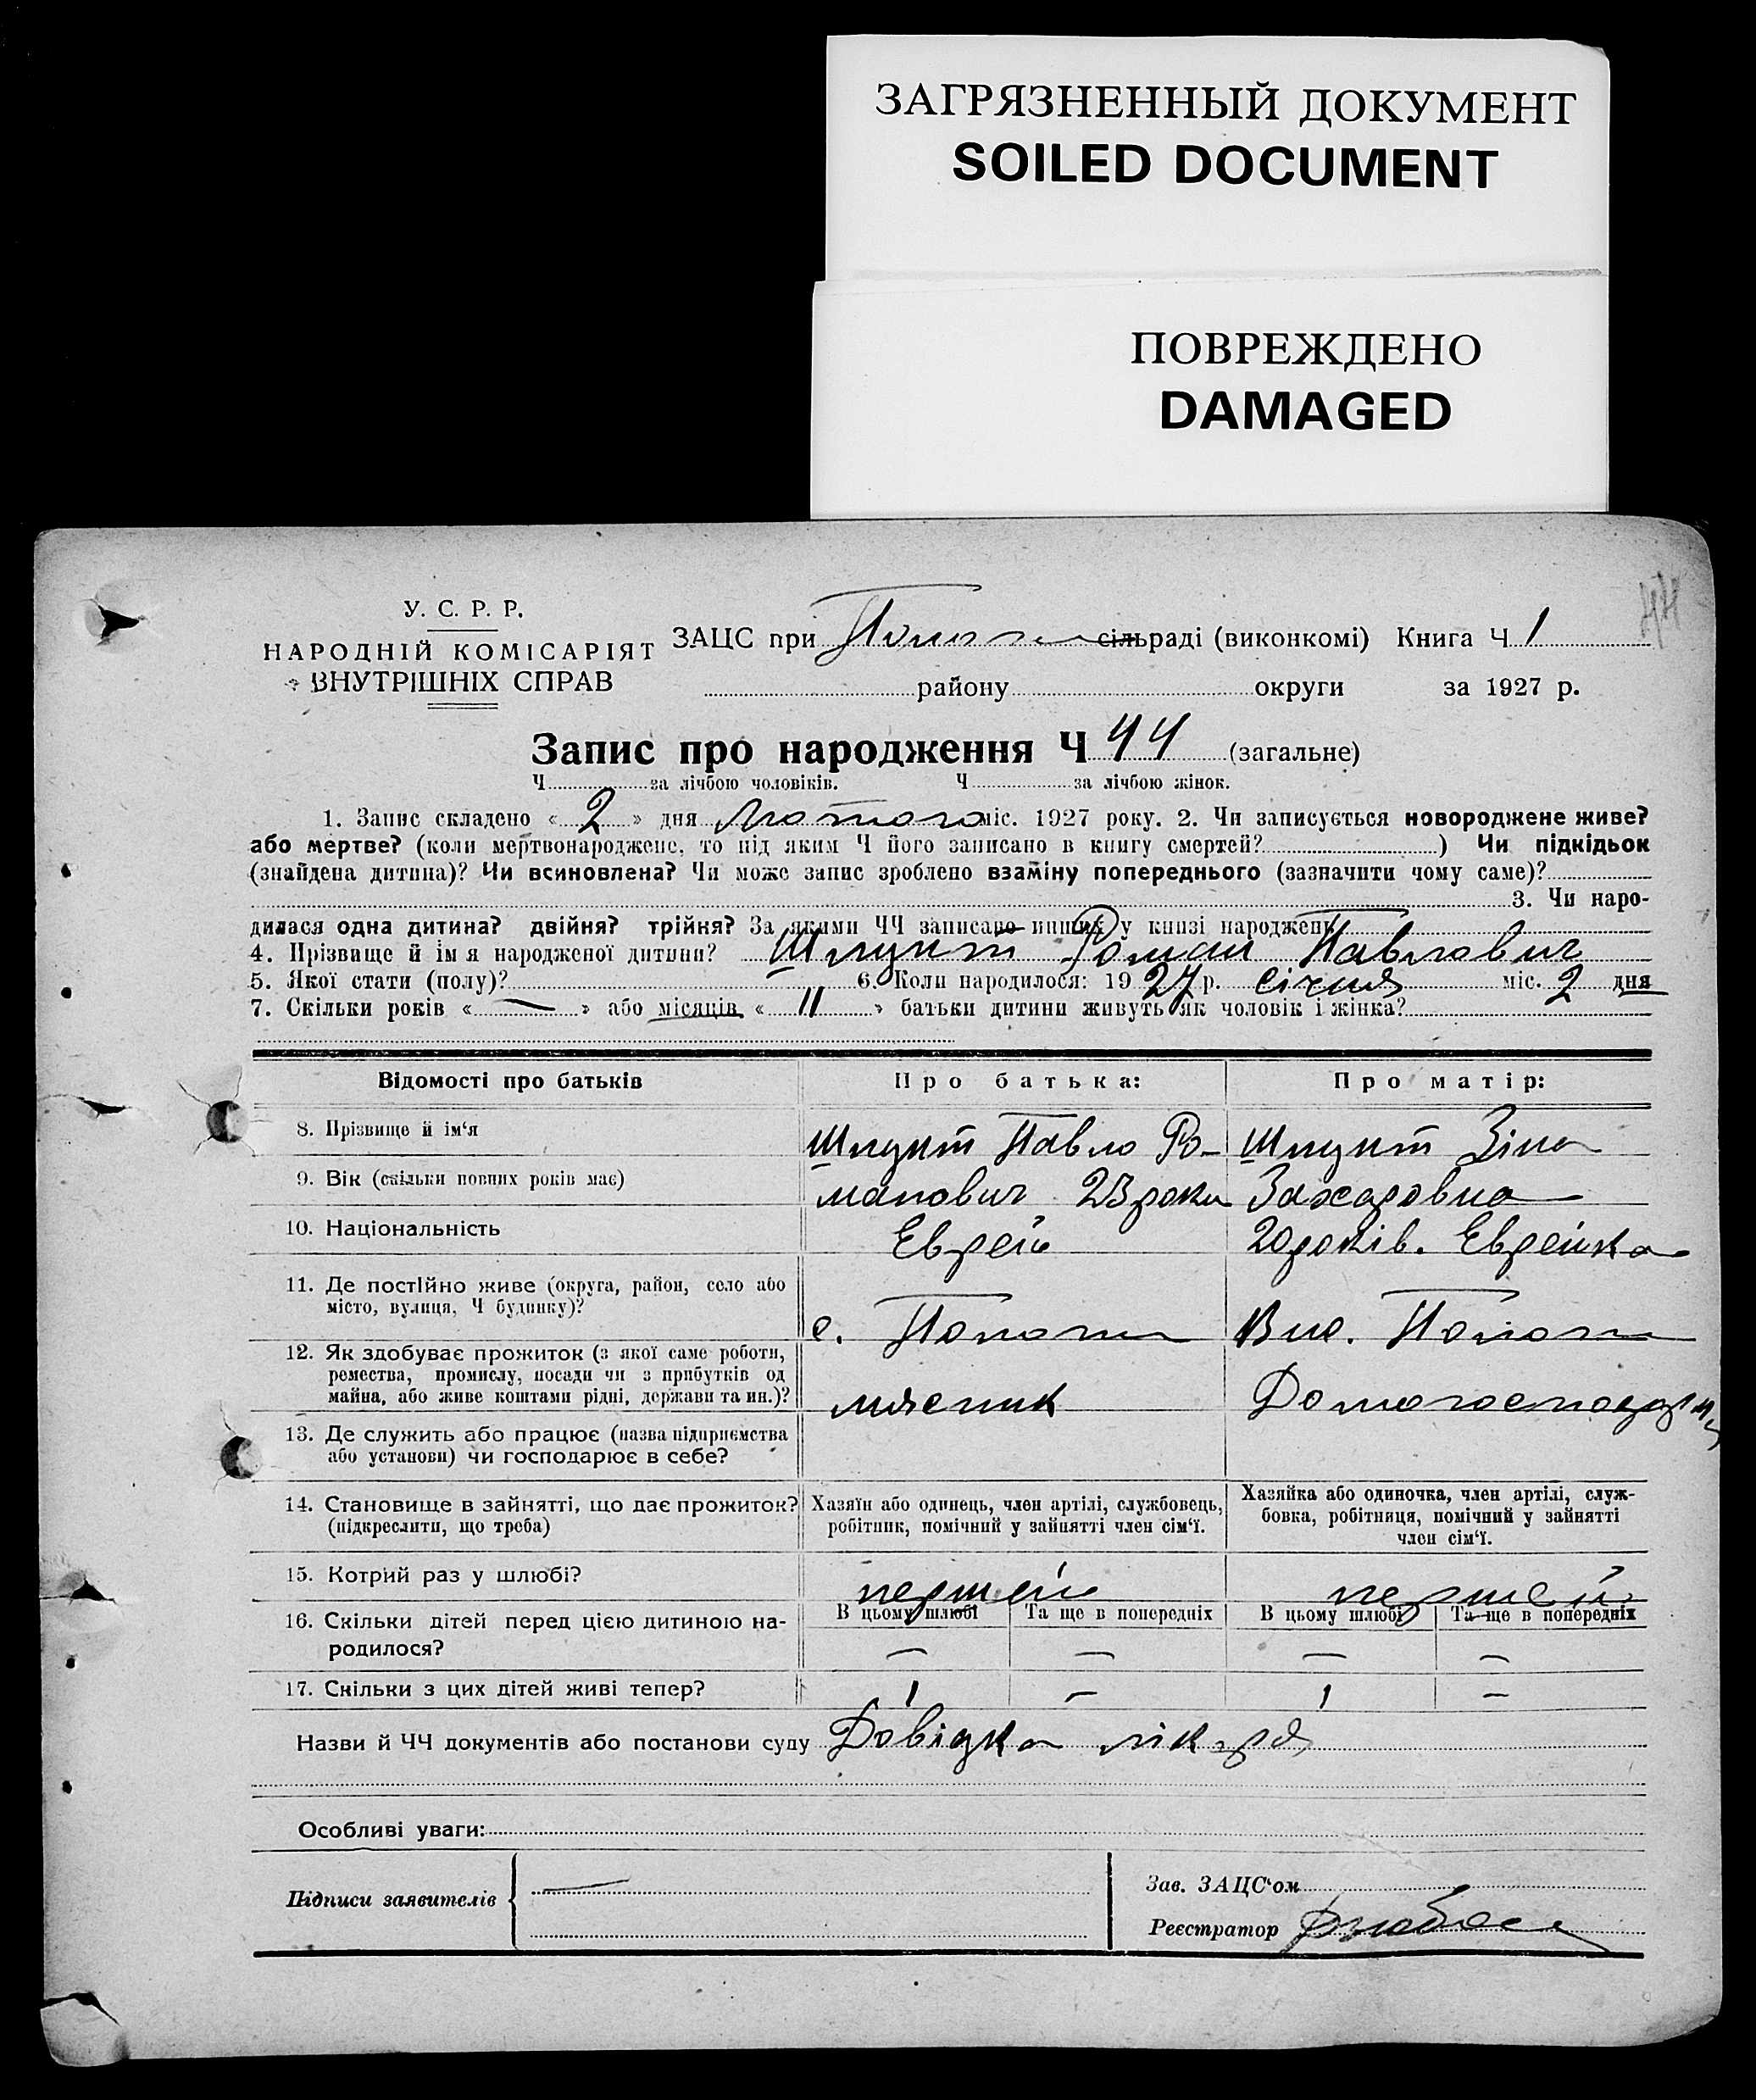 ЗАГРЯЗНЕННЫЙ ДОКУМЕНТ
SOILED DOCUMENT
ПОВРЕЖДЕНО
DAMAGED
44
У. С. Р. Р.
НАРОДНІЙ КОМІСАРІЯТ
ВНУТРІШНІХ СПРАВ
ЗАЦС при сільраді (виконкомі) Книга Ч 1
району округи за 1927 р.
Запис про народження Ч 44 (загальне)
Ч за лічбою чоловіків. Ч за лічбою жінок.
1. Запис складено « 2 » дня Лютого міс. 1927 року. 2. Чи записується новороджене живе?
або мертве? (коли мертвонароджене, то під яким Ч його записано в книгу смертей? ) Чи підкідьок
(знайдена дитина)? Чи всиновлена? Чи може запис зроблено взаміну попереднього (зазначити чому саме)?
3. Чи наро-
дилася одна дитина? двійня? трійня? За якими ЧЧ записано инших у книзі народжень
4. Прізвище й ім'я народженої дитини? Роман Павлович
5. Якої стати (полу)? 6. Коли народилося: 1927 р. січня міс. 2 дня
7. Скільки років « — » або місяців « 11 » батьки дитини живуть як чоловік і жінка?
Відомості про батьків Про батька: Про матір:
8. Прізвище й ім'я Павло Ро- Зіна
9. Вік (скільки повних років має) манович 23 роки Захаровна
10. Національність Еврей 20 років. Еврейка
11. Де постійно живе (округа, район, село або
місто, вулиця, Ч будинку)?
с.
12. Як здобуває прожиток (з якої саме роботи,
ремества, промислу, посади чи з прибутків од
майна, або живе коштами рідні, держави та ин.)?
мясник
13. Де служить або працює (назва підприємства
або установи) чи господарює в себе?
14. Становище в зайнятті, що дає прожиток?
(підкреслити, що треба)
Хазяїн або одинець, член артілі, службовець,
робітник, помічний у зайнятті член сім'ї.
Хазяйка або одиночка, член артілі, служ-
бовка, робітниця, помічний у зайнятті
член сім'ї.
15. Котрий раз у шлюбі? першей першей
16. Скільки дітей перед цією дитиною на-
родилося?
В цьому шлюбі Та ще в попередніх В цьому шлюбі Та ще в попередніх
— — — —
17. Скільки з цих дітей живі тепер? 1 — 1 —
Назви й ЧЧ документів або постанови суду Довідка лікаря
Особливі уваги:
Підписи заявителів —
Зав. ЗАЦС'ом
Реєстратор